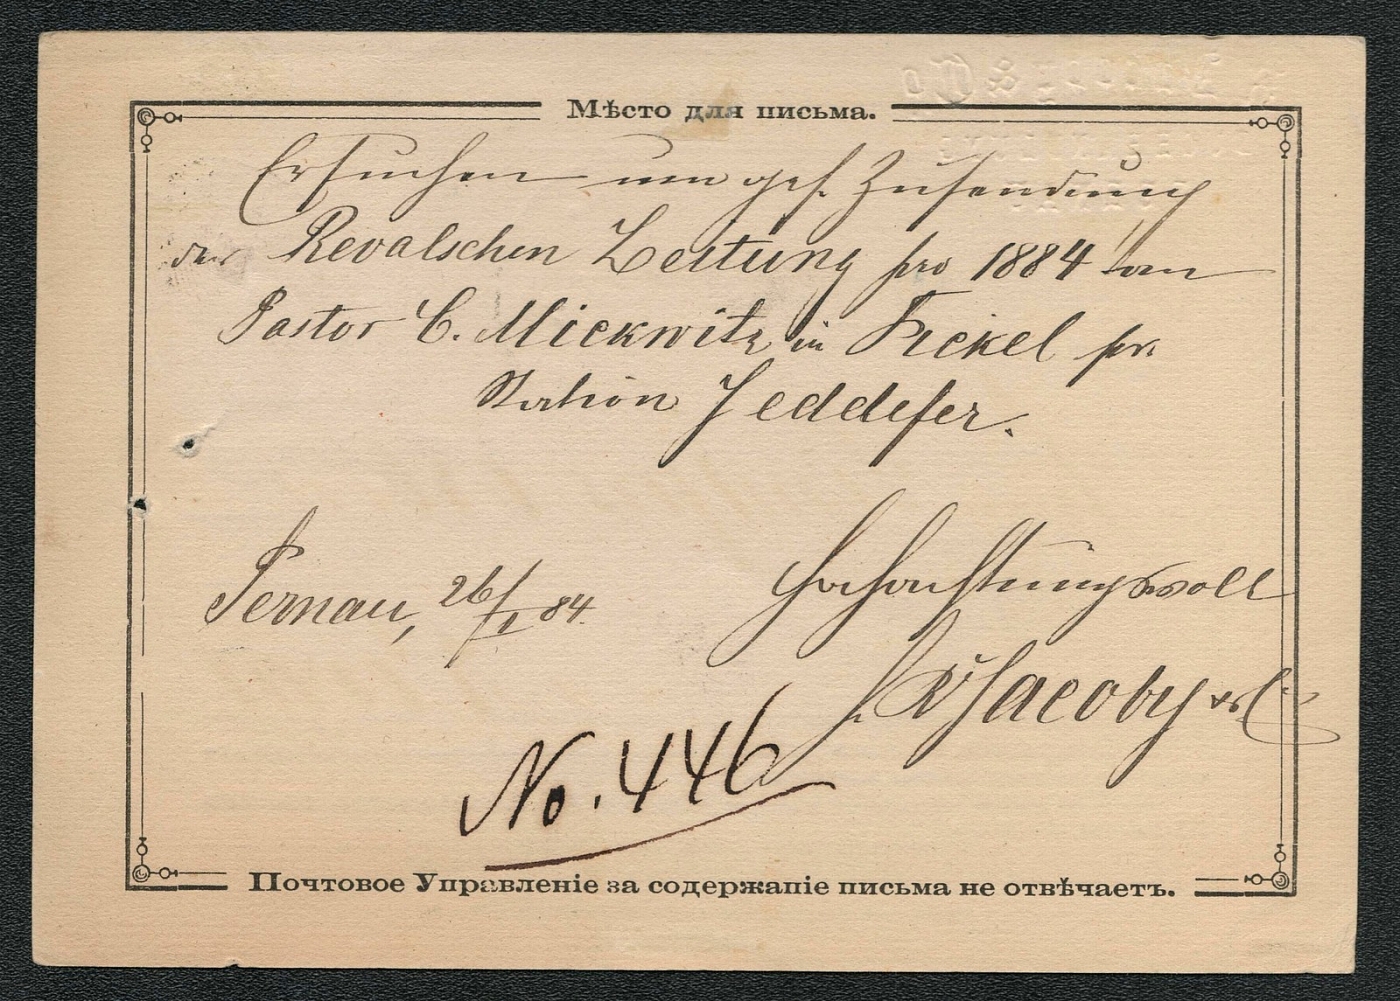 Мѣсто для письма.
Ersuchen um gef. Zusendung
der Revalschen Zeitung pro 1884 an
Pastor C. Mickwitz in Fickel pr.
Station Jeddefer.
Pernau, 26/I 84.
Hochachtungsvoll
Jacoby & Co
No. 446
Почтовое Управленіе за содержаніе письма не отвѣчаетъ.